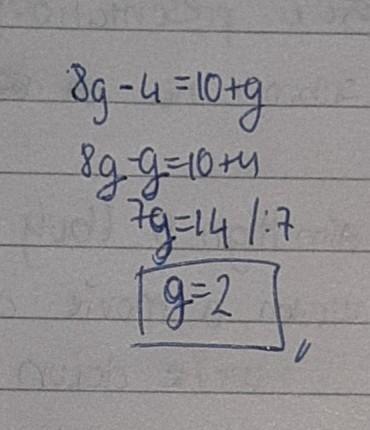 8g-4=10+g
8g-g=10+4
7g=14 /:7
g=2